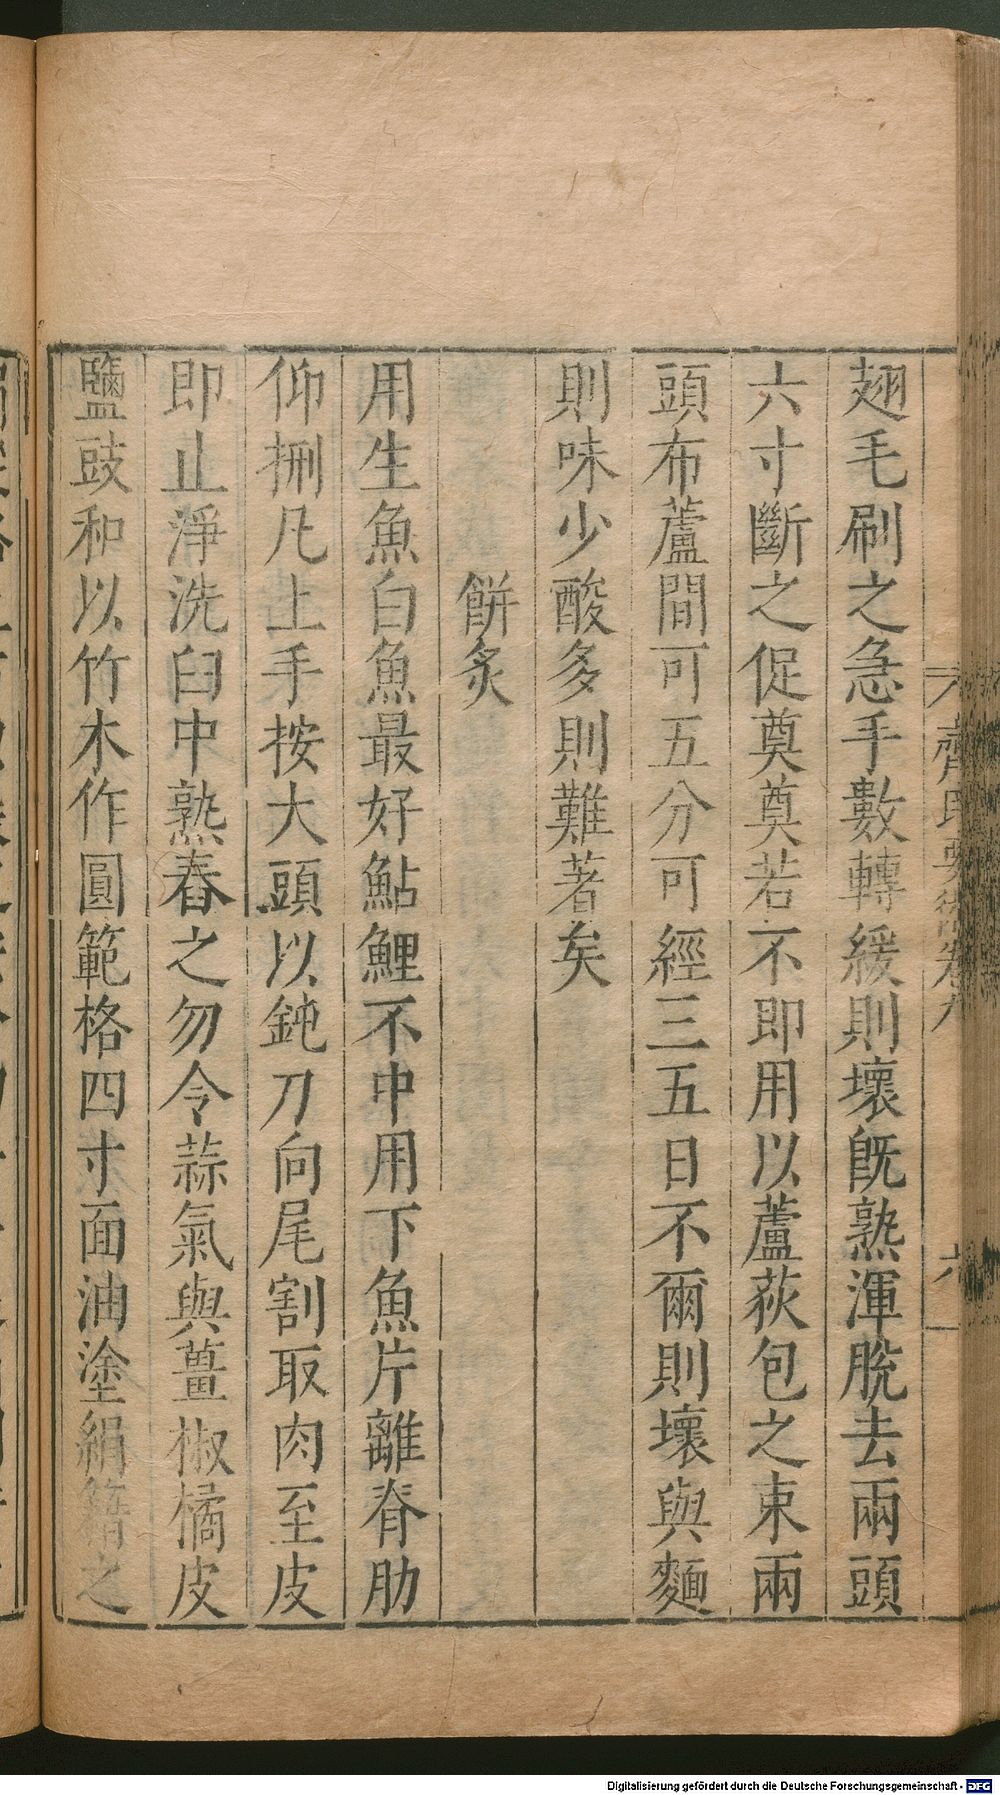 翅毛刷之急手數轉緩則壞既熟渾脫去兩頭
六寸斷之促奠奠若不即用以蘆荻包之束兩
頭布蘆間可五分可經三五日不爾則壞與麵
則味少酸多則難著矣
餅炙
用生魚白魚最好鮎鯉不中用下魚片離脊肋
仰捌几上手按大頭以鈍刀向尾割取肉至皮
即止淨洗臼中熟舂之勿令蒜氣與薑椒橘皮
鹽豉和以竹木作圓範格四寸面油塗絹籍之
Digitalisierung gefördert durch die Deutsche Forschungsgemeinschaft - DFG